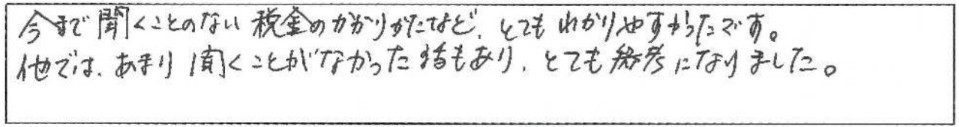 今まで聞くことのない税金のかかりかたなど、とてもわかりやすかったです。
他では、あまり聞くことがなかった話もあり、とても参考になりました。